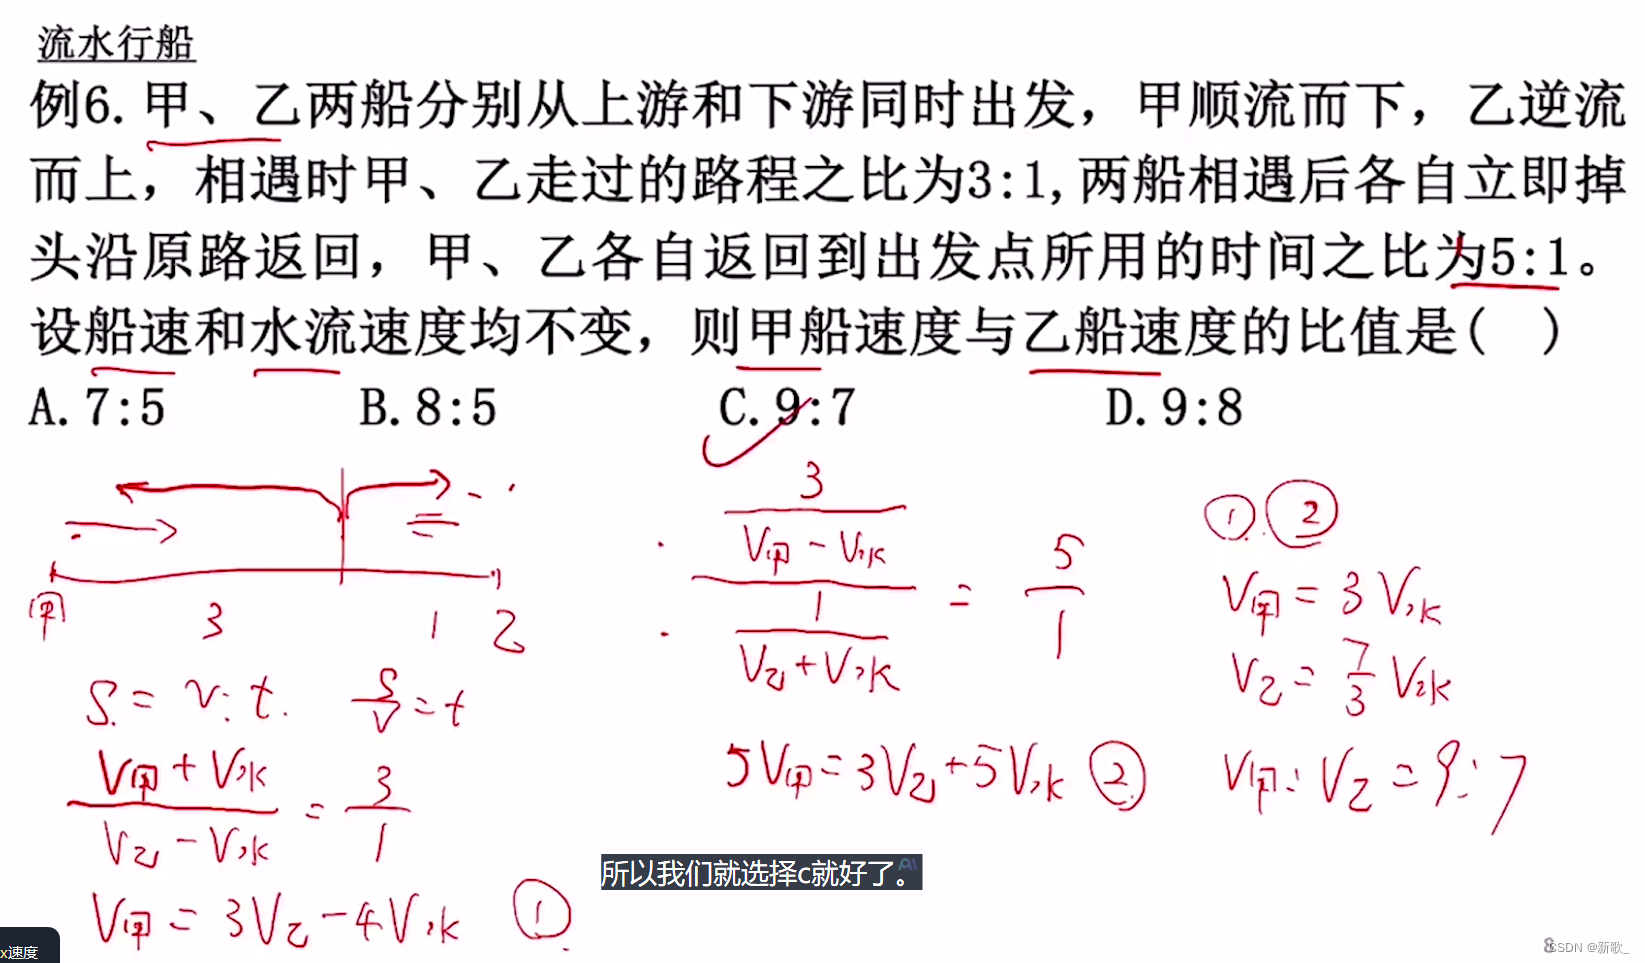 流水行船
例6.甲、乙两船分别从上游和下游同时出发，甲顺流而下，乙逆流
而上，相遇时甲、乙走过的路程之比为3:1,两船相遇后各自立即掉
头沿原路返回，甲、乙各自返回到出发点所用的时间之比为5:1。
设船速和水流速度均不变，则甲船速度与乙船速度的比值是( )
A.7:5 B.8:5 C.9:7 D.9:8
甲 3 1 乙
S = v·t. S/V = t
V甲 + V水 / V乙 - V水 = 3/1
V甲 = 3V乙 - 4V水 ①
3 / V甲 - V水
1 / V乙 + V水
= 5/1
5V甲 = 3V乙 + 5V水 ②
① ②
V甲 = 3V水
V乙 = 7/3 V水
V甲 : V乙 = 9 : 7
所以我们就选择c就好了。
x速度
8
CSDN @新歌_